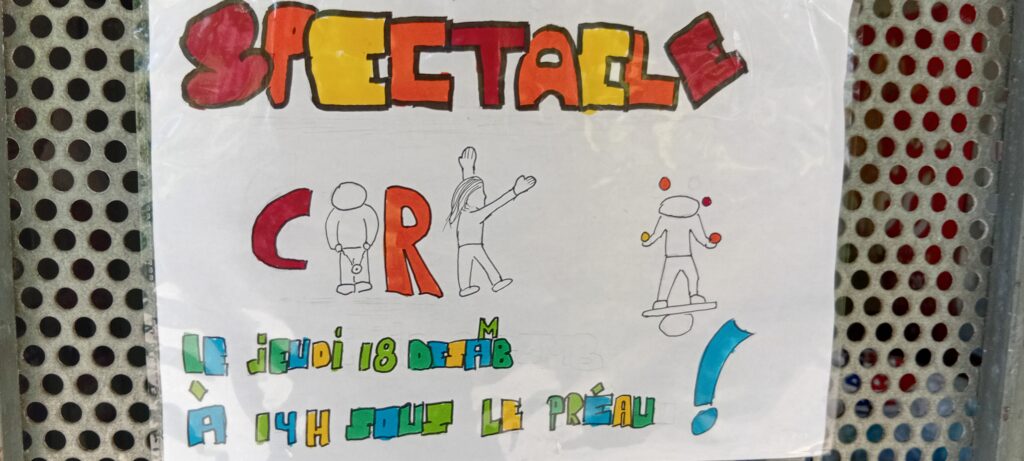 SPECTACLE
CIRK
LE jEUDi 18 DESAMB
À 14H SOUS LE PRÉAU !